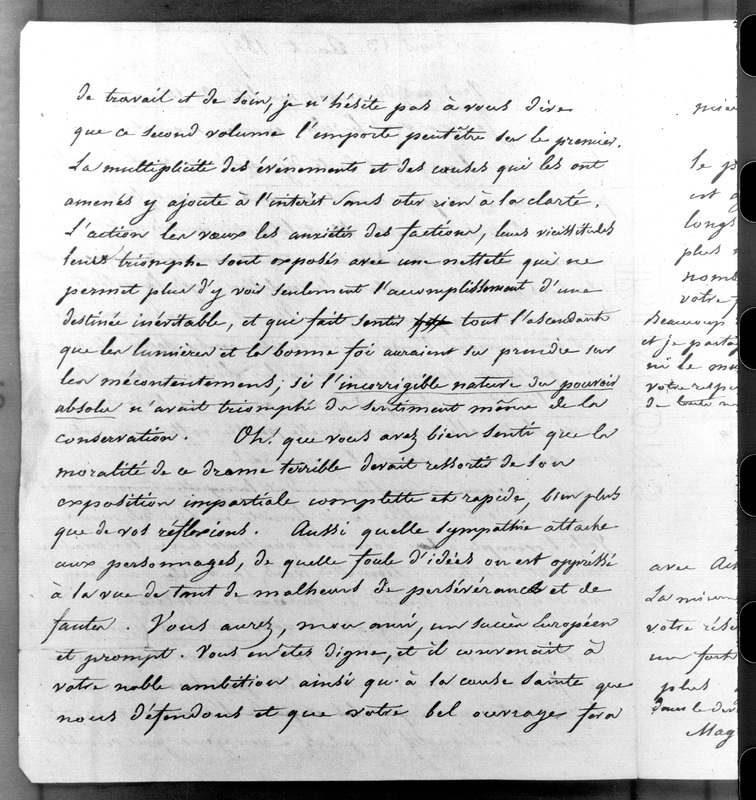 de travail et de soin, je n'hésite pas à vous dire
que ce second volume l'emporte peutêtre sur le premier.
La multiplicité des événements et des causes qui les ont
amenés y ajoute à l'intérêt sans oter rien à la clarté.
L'action les vœux les anxiétés des factions, leurs vicissitudes
leurs triomphe sont exposés avec une netteté qui ne
permet plus d'y voir seulement l'accomplissement d'une
destinée inévitable, et qui fait sentir tout l'ascendant
que les lumières et la bonne foi auraient su prendre sur
les mécontentemens; si l'incorrigible nature du pouvoir
absolu n'avait triomphé du sentiment même de la
conservation. Oh! que vous avez bien senti que la
moralité de ce drame terrible devait ressortir de son
exposition impartiale complette et rapide, bien plus
que de vos réflexions. Aussi quelle sympathie attache
aux personnages, de quelle foule d'idées on est oppressé
à la vue de tant de malheurs de persévérance et de
fautes. Vous aurez, mon ami, un succès Européen
et prompt. Vous en êtes digne, et il convenait à
votre noble ambition ainsi qu'à la cause sainte que
nous défendons et que votre bel ouvrage fera
le p
est a
longs
plus
nomb
votre
Beaucoup
et je partag
ni le
votre resp
de toute
avec
La
votre rése
un fort
plus
dans le der
Mag